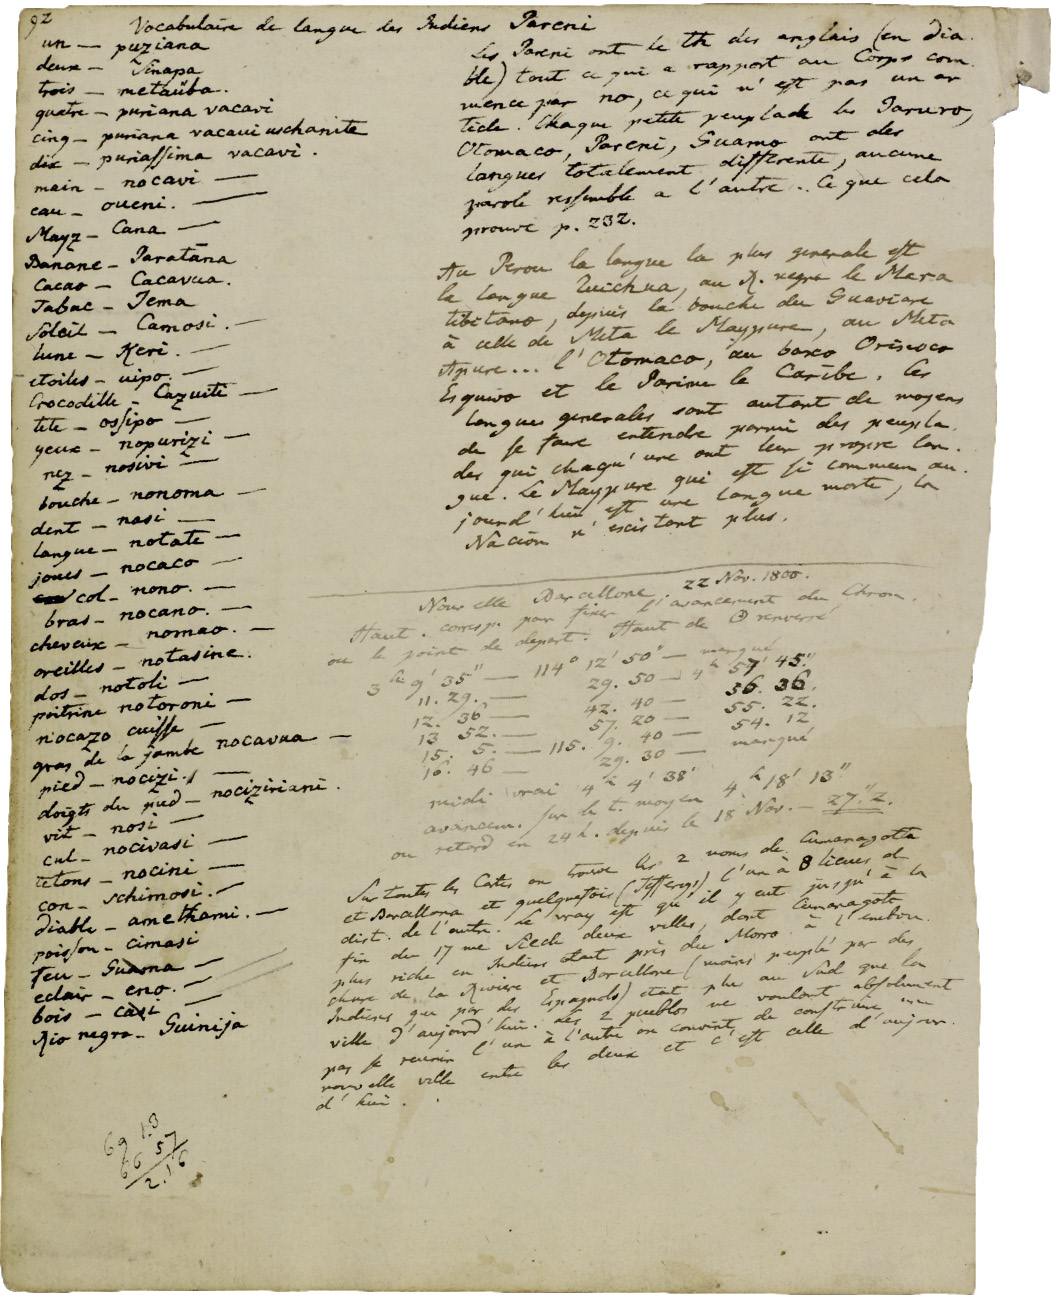 92
Vocabulaire de langue des Indiens Pareni
un — puziana
deux — Sinapa
trois — metaüba.
quatre — puriana vacavi
cinq — puriana vacavi uschanite
dix — puriassima vacavi.
main — nocavi —
eau — oueni. —
Mayz — Cana —
Banane — Paratāna
Cacao — Cacavua.
Tabac — Jema
Soleil — Camosi. —
lune — Keri. —
etoiles — uipo. —
Crocodille — Cazuiti —
tete — ossipo —
yeux — nopurizi —
nez — nosivi —
bouche — nonoma —
dent — nasi —
langue — notate —
joues — nocaco —
col — nono. —
bras — nocano. —
cheveux — nomao. —
oreilles — notasine.
dos — notoli —
poitrine notoroni —
nocazo cuisse —
gras de la jambe nocavua —
pied — nocizi. —
doigts du pied — nociziriani.
vit — nosi —
cul — nocivasi —
tetons — nocini —
con — schimosi. —
diable — amethami. —
poisson — cimasi
feu — Guama —
eclair — eno. —
bois — casi —
Rio negro — Guinija
69 1.3
66 57
2.16
Les Pareni ont le th des anglais (en dia-
ble) tout ce qui a rapport au Corps com-
mence par no, ce qui n'est pas un ar
ticle. Chaque petite peuplade les Jaruro,
Otomaco, Pareni, Guamo ont des
langues totalement differente, aucune
parole ressemble a l'autre.. Ce que cela
prouve p. 232.
Au Perou la langue la plus generale est
la langue Quichua, au R. negro le Mara
tibitano, depuis la bouche du Guaviare
à celle de Meta le Maypure, au Meta
Apure... l'Otomaco, au baxo Orinoco
Esquivo et le Parime le Caribe. Ces
langues generales sont autant de moyens
de se faire entendre parmi des peupla-
des qui chaqu'une ont leur propre lan-
gue. Le Maypure qui est si commun au-
jourd'hui est une langue morte, la
Nacion n'escistant plus.
Nouvelle Barcellone 22 Nov. 1800.
Haut. corresp. pour fixer l'avancement du Chron.
ou le point de depart. Haut de ⊙ renversé
3h 9' 35" — 114° 12' 50" — manqué
11. 29. — 29. 50 — 4h 57' 45."
12. 36 — 42. 40 — 56. 36.
13 52. — 57. 20 — 55. 22.
15. 5. — 115. 9. 40 — 54. 12
16. 46 — 29. 30 — manqué
midi vrai 4h 4' 38' 4h 18' 13"
avancem. sur le t. moyen
ou retard en 24h. depuis le 18 Nov. — 27."2.
Sur toutes les Cartes on trouve les 2 noms de Cumanagotta
et Barcellona et quelquefois (Jefferys) l'un à 8 lieues de
dist. de l'autre. Le vray est qu'il y eut jusqu'à la
fin du 17 me Siecle deux villes, dont Cumanagote
plus riche en Indiens etait près du Morro à l'embou-
chure de la Riviere et Barcellone (moins peuplé par des
Indiens que par des Espagnols) etait plus au Sud que la
ville d'aujourd'hui. Les 2 pueblos ne voulant absolument
pas se reunir l'un à l'autre on convint de construire une
nouvelle ville entre les deux et c'est celle d'aujour-
d'hui.